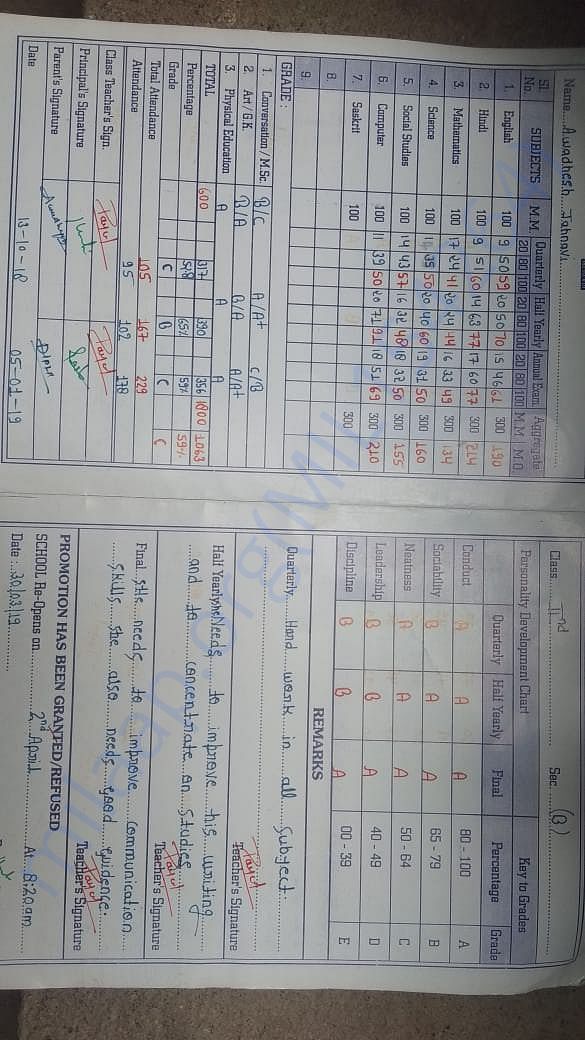 Name....Awadhesh Jahnavi
Sl. No. SUBJECTS M.M. Quarterly Half Yearly Annual Exam Aggregate
20 80 100 20 80 100 20 80 100 M.M. M.O.
1. English 100 9 50 59 20 50 70 15 46 61 300 190
2. Hindi 100 9 51 60 14 63 77 17 60 77 300 214
3. Mathematics 100 17 24 41 20 24 44 16 33 49 300 134
4. Science 100 35 50 20 40 60 19 31 50 300 160
5. Social Studies 100 14 43 57 16 32 48 18 32 50 300 155
6. Computer 100 11 39 50 20 71 91 18 51 69 300 210
7. Saskrit 100 300
8.
9.
GRADE :
1. Conversation / M.Sc. B/C A/A+ C/B
2. Art / G.K B/A B/A A/A+
3. Physical Education A A A
TOTAL 600 317 390 356 1800 1063
Percentage 65% 59% 59%
Grade C B C C
Total Attendance 105 167 229
Attendance 95 102 178
Class Teacher's Sign. Payal Payal
Principal's Signature
Parent's Signature
Date 13-10-18 05-01-19
Class....IInd.... Sec....(B)
Personality Development Chart Key to Grades
Quarterly Half Yearly Final Percentage Grade
Conduct B A A 80 - 100 A
Sociability B A A 65 - 79 B
Neatness A A A 50 - 64 C
Leadership B B A 40 - 49 D
Discipline B B A 00 - 39 E
REMARKS
Quarterly....Hand work in all subject.
Payal
Teacher's Signature
Half Yearly Needs to improve his writing
and to concentrate on studies
Payal
Teacher's Signature
Final She needs to improve communication
skills she also needs good guidence.
Payal
Teacher's Signature
PROMOTION HAS BEEN GRANTED/REFUSED
SCHOOL Re-Opens on....2nd April....At...8:20am
Date : 30/03/19
milaap.org